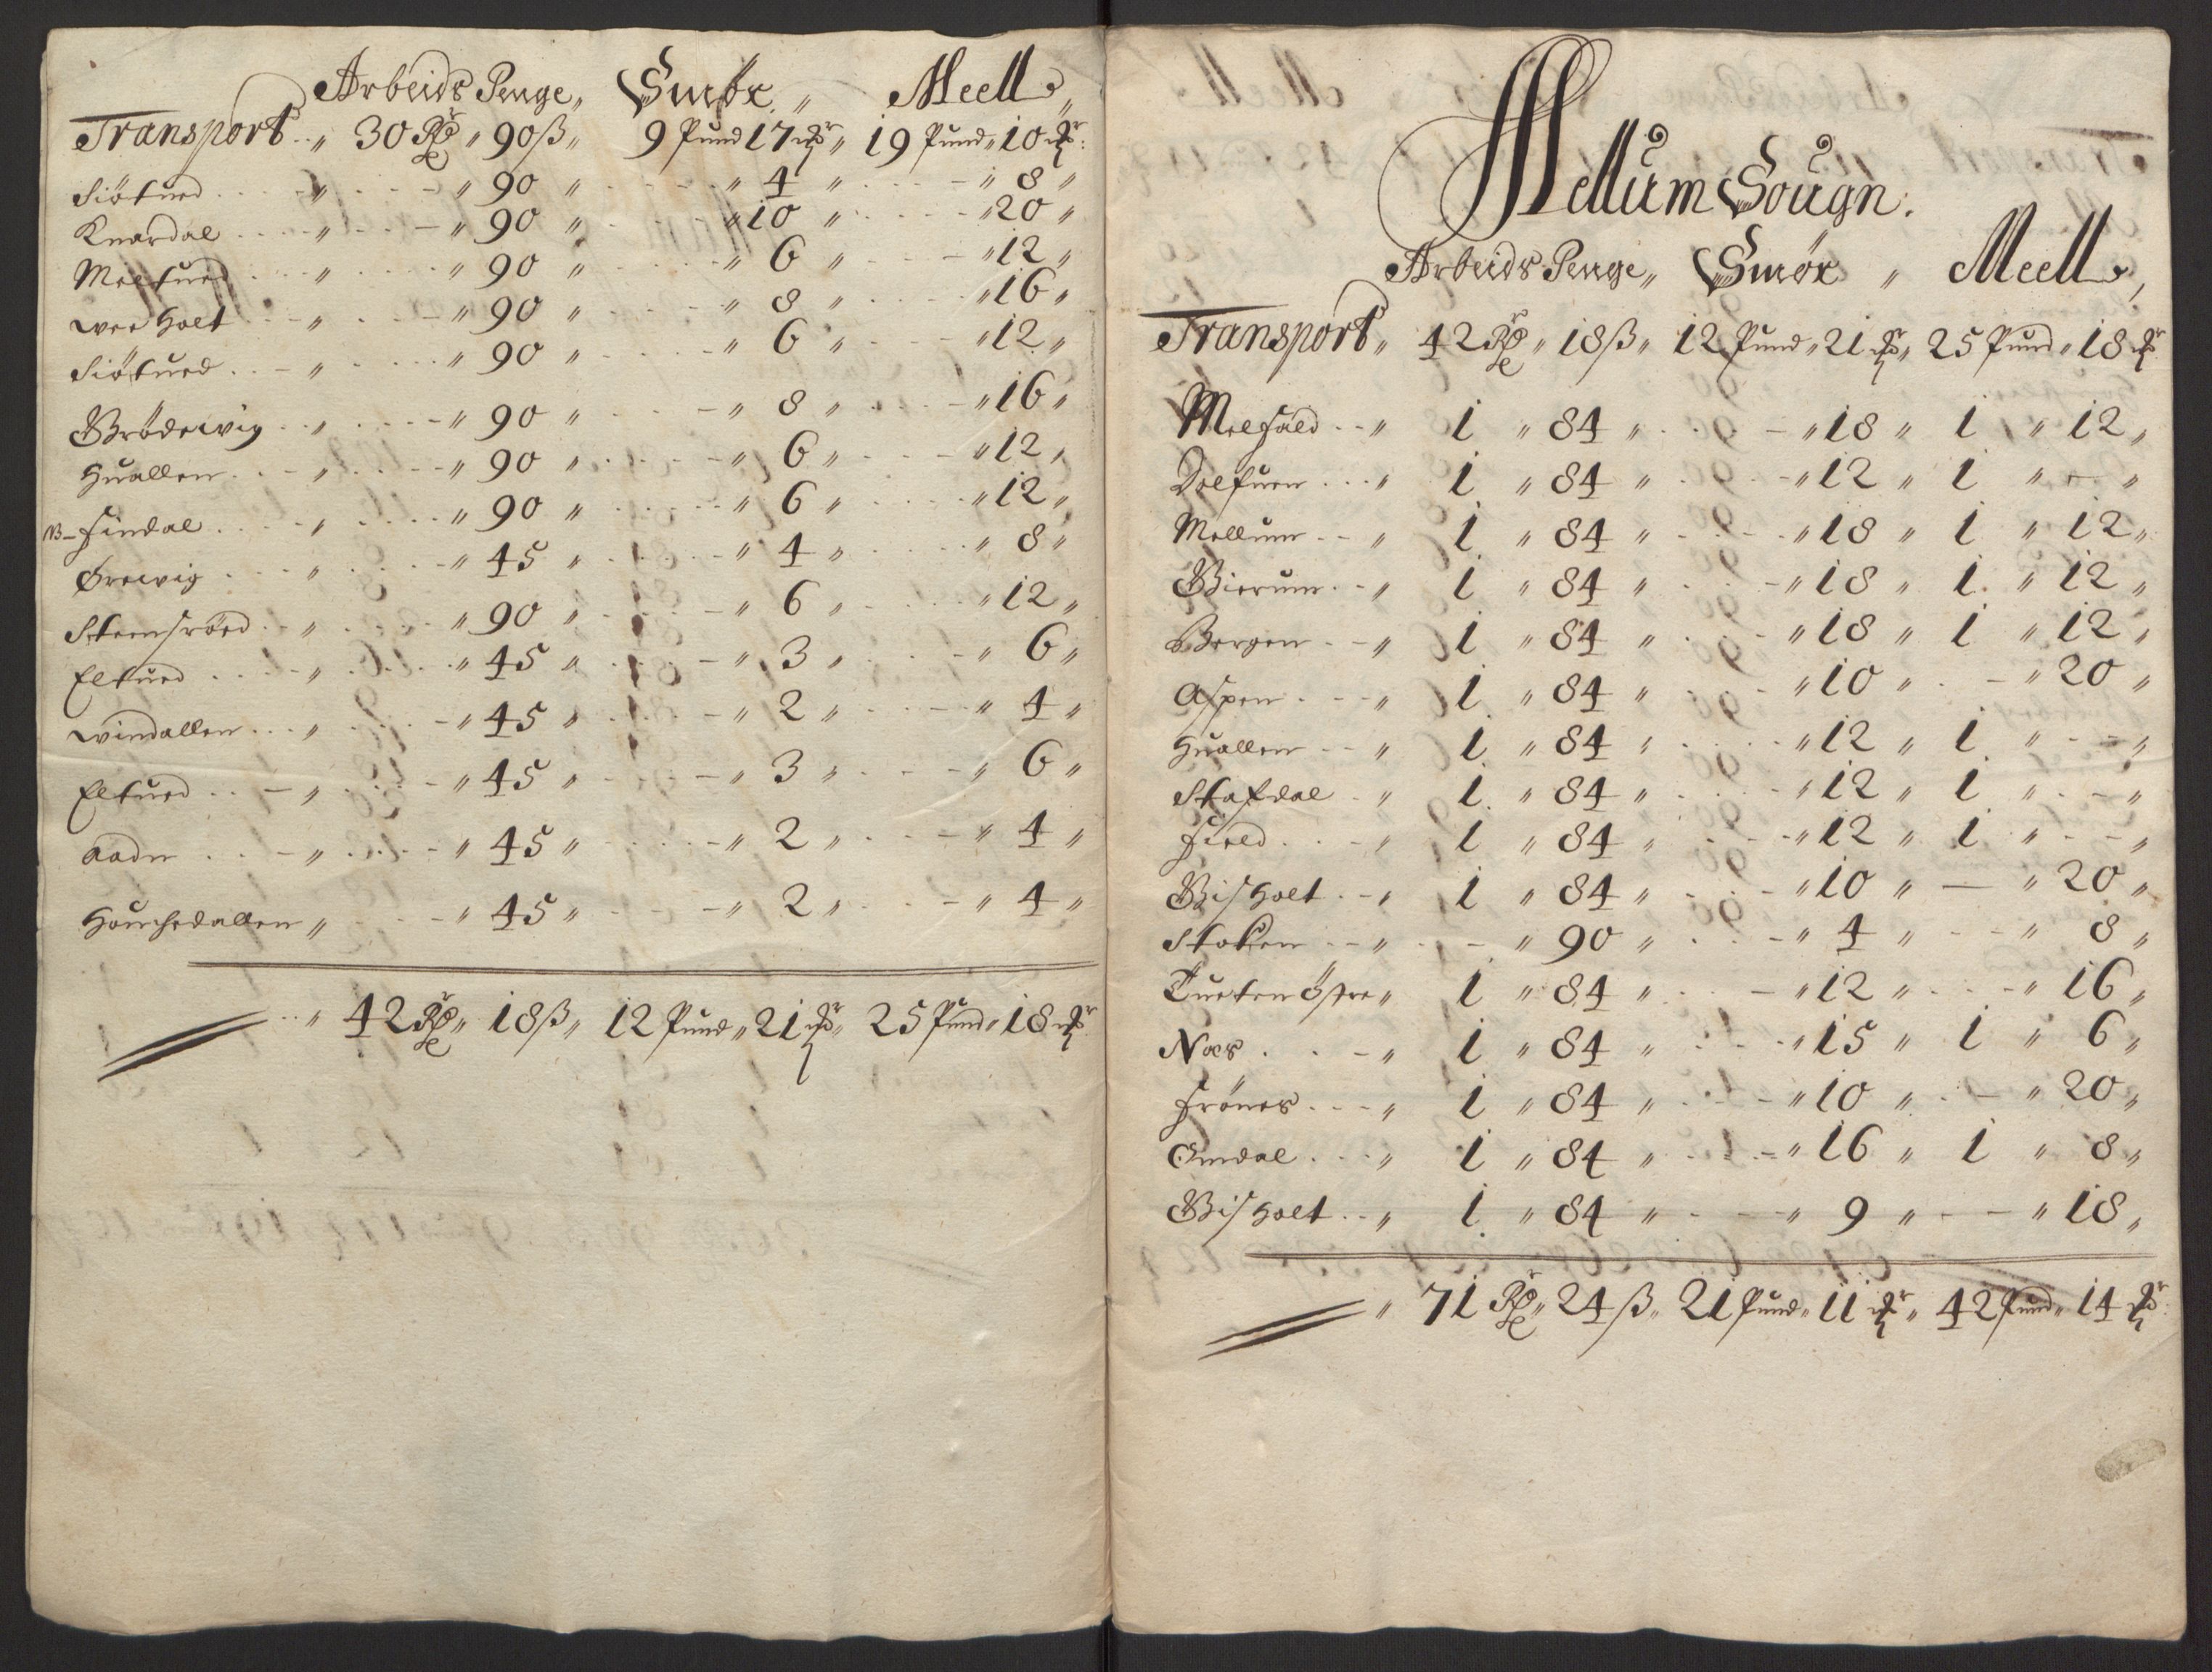 Arbeids Penge „ Smör „ Meell „
Transport „ 30 Rdr „ 90 ß „ 9 Pund 17 mkr „ 19 Pund „ 10 mkr
Siötued „ „ 90 „ „ 4 „ „ 8 „
Knardal „ „ 90 „ „ 10 „ „ 20 „
Meltued „ „ 90 „ „ 6 „ „ 12 „
wee Holt „ „ 90 „ „ 8 „ „ 16 „
Siötued „ „ 90 „ „ 6 „ „ 12 „
Brödewig „ „ 90 „ „ 8 „ „ 16 „
Huallen „ „ 90 „ „ 6 „ „ 12 „
NB Findal „ „ 90 „ „ 6 „ „ 12 „
Grewig „ „ 45 „ „ 4 „ „ 8 „
Steensröed „ „ 90 „ „ 6 „ „ 12 „
Eltued „ „ 45 „ „ 3 „ „ 6 „
windallen „ „ 45 „ „ 2 „ „ 4 „
Eltued „ „ 45 „ „ 3 „ „ 6 „
Aadn „ „ 45 „ „ 2 „ „ 4 „
„ „ 45 „ „ 2 „ „ 4 „
„ 42 Rdr „ 18 ß „ 12 Pund „ 21 mkr „ 25 Pund „ 18 mkr
Mellum Sougn.
Arbeids Penge „ Smör „ Meell „
Transport „ 42 Rdr „ 18 ß „ 12 Pund „ 21 mkr „ 25 Pund „ 18 mkr
Melhald „ 1 „ 84 „ „ 18 „ 1 „ 12 „
Doltuen „ 1 „ 84 „ „ 12 „ 1 „ - „
Mellum „ 1 „ 84 „ „ 18 „ 1 „ 12 „
Bierum „ 1 „ 84 „ „ 18 „ 1 „ 12 „
Bergen „ 1 „ 84 „ „ 18 „ 1 „ 12 „
Aspen „ 1 „ 84 „ „ 10 „ - „ 20 „
Huallen „ 1 „ 84 „ „ 12 „ 1 „ - „
Stafdal „ 1 „ 84 „ „ 12 „ 1 „ - „
Field „ 1 „ 84 „ „ 12 „ 1 „ - „
Bisholt „ 1 „ 84 „ „ 10 „ - „ 20 „
Stoken „ - „ 90 „ „ 4 „ - „ 8 „
Tueten östre „ 1 „ 84 „ „ 12 „ - „ 16 „
Næs „ 1 „ 84 „ „ 15 „ 1 „ 6 „
Frönes „ 1 „ 84 „ „ 10 „ - „ 20 „
Omdal „ 1 „ 84 „ „ 16 „ 1 „ 8 „
Bisholt „ 1 „ 84 „ „ 9 „ - „ 18 „
„ 71 Rdr „ 24 ß „ 21 Pund „ 11 mkr „ 42 Pund „ 14 mkr